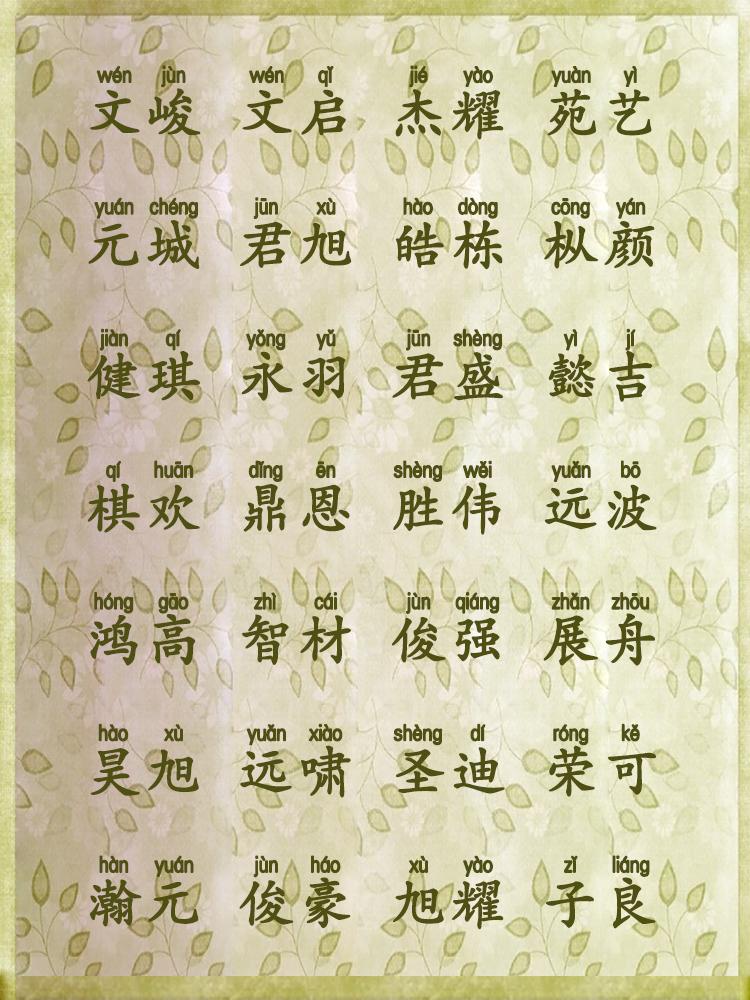 wén jùn wén qǐ jié yào yuàn yì
文峻 文启 杰耀 苑艺
yuán chéng jūn xù hào dòng cōng yán
元城 君旭 皓栋 枞颜
jiàn qí yǒng yǔ jūn shèng yì jí
健琪 永羽 君盛 懿吉
qí huān dǐng ēn shèng wěi yuǎn bō
棋欢 鼎恩 胜伟 远波
hóng gāo zhì cái jùn qiáng zhǎn zhōu
鸿高 智材 俊强 展舟
hào xù yuǎn xiào shèng dí róng kě
昊旭 远啸 圣迪 荣可
hàn yuán jùn háo xù yào zǐ liáng
瀚元 俊豪 旭耀 子良